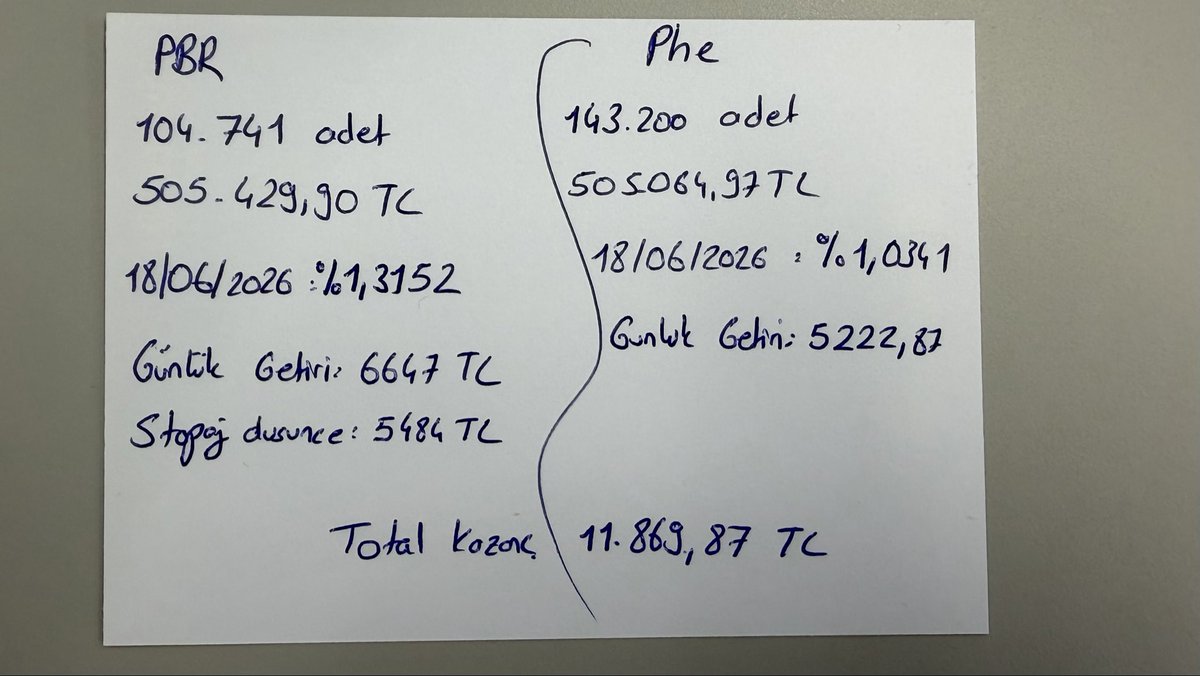 PBR
104.741 adet
505.429,90 TL
18/06/2026 : %1,3152
Günlük Getiri: 6647 TL
Stopaj dusunce: 5484 TL
Phe
143.200 adet
505.064,97 TL
18/06/2026 : %1,0341
Gunluk Getiri: 5222,87
Total kazanç 11.869,87 TL